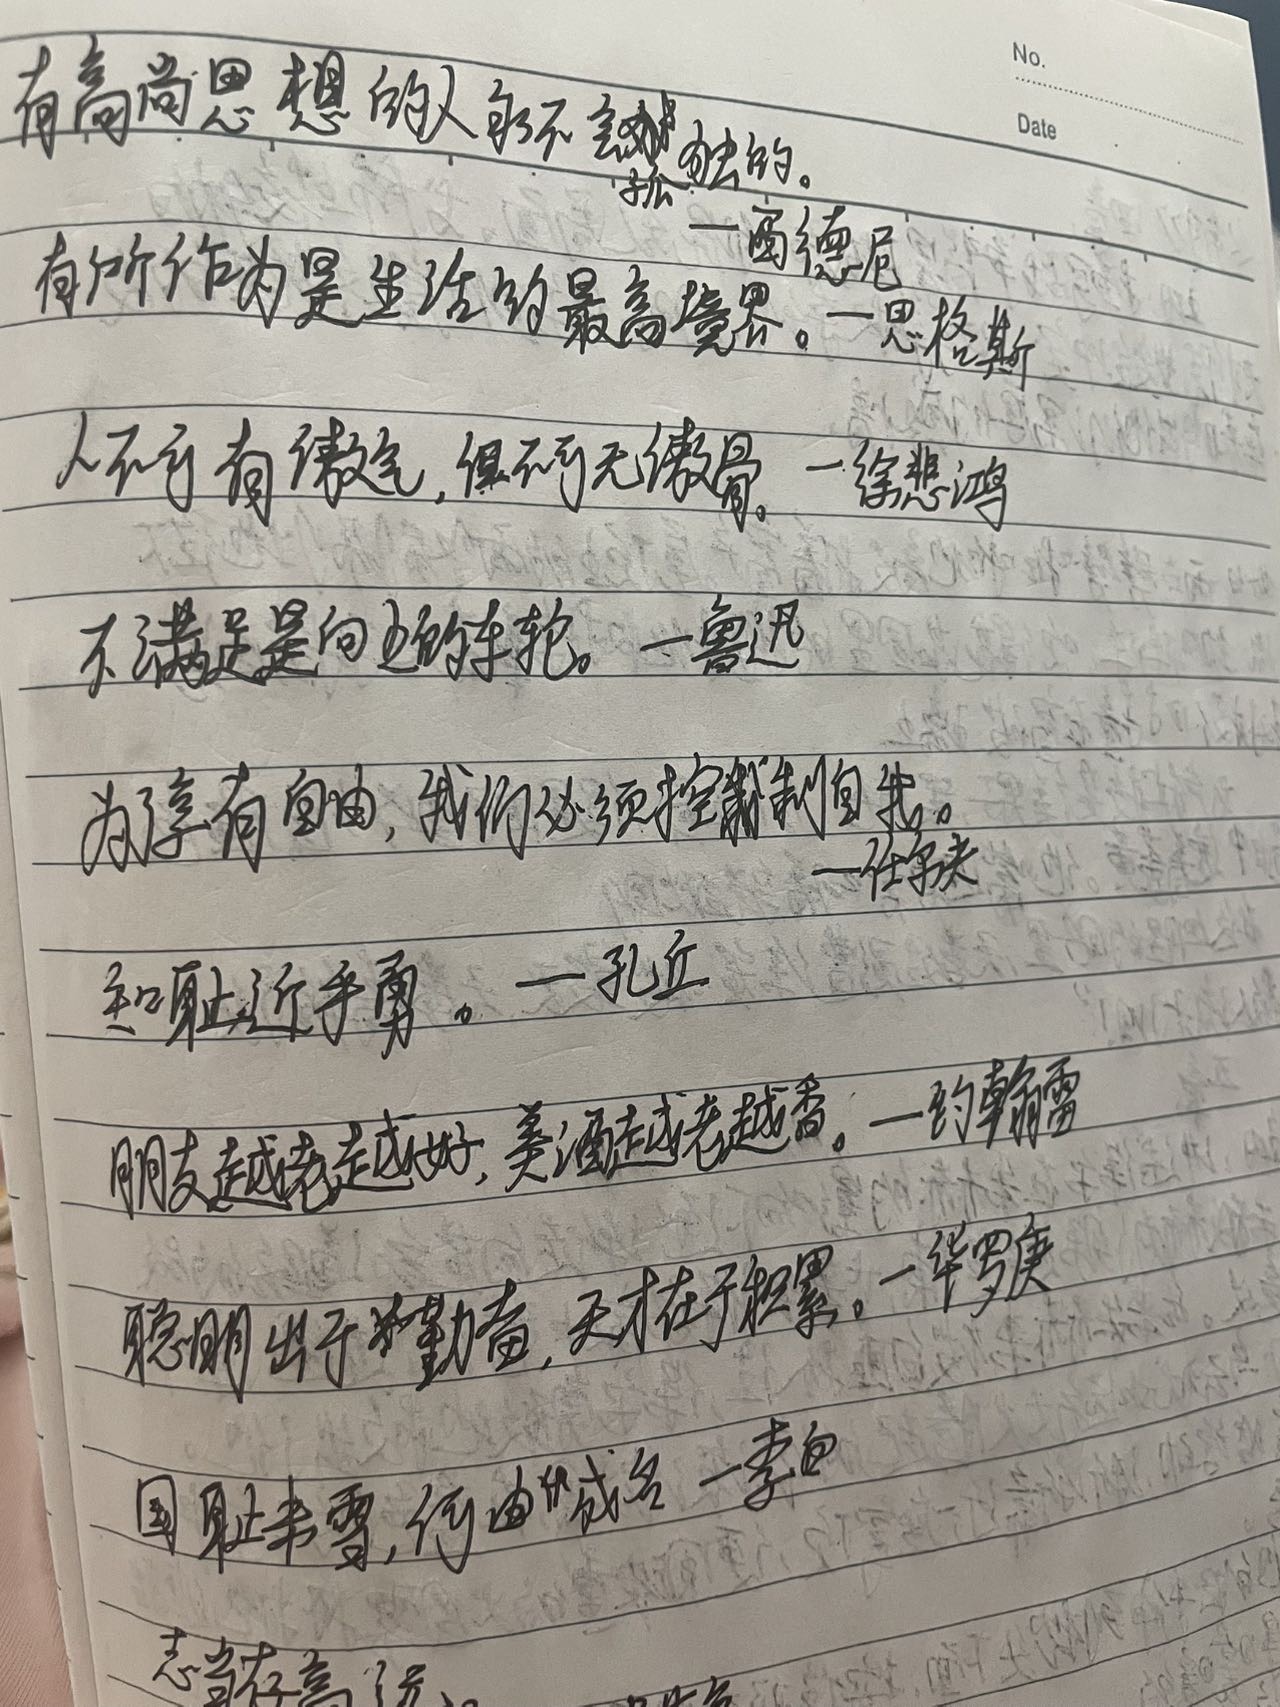 No.
Date
有高尚思想的人永不会孤独的。
—西德尼
有所作为是生活的最高境界。—恩格斯
人不可有傲气,但不可无傲骨。—徐悲鸿
不满足是向上的车轮。—鲁迅
为享有自由,我们必须控制自我。
—伍尔夫
知耻近乎勇。—孔丘
朋友越老越好,美酒越老越香。—约翰雷
聪明出于勤奋,天才在于积累。—华罗庚
国耻未雪,何由成名 —李白
志当存高远